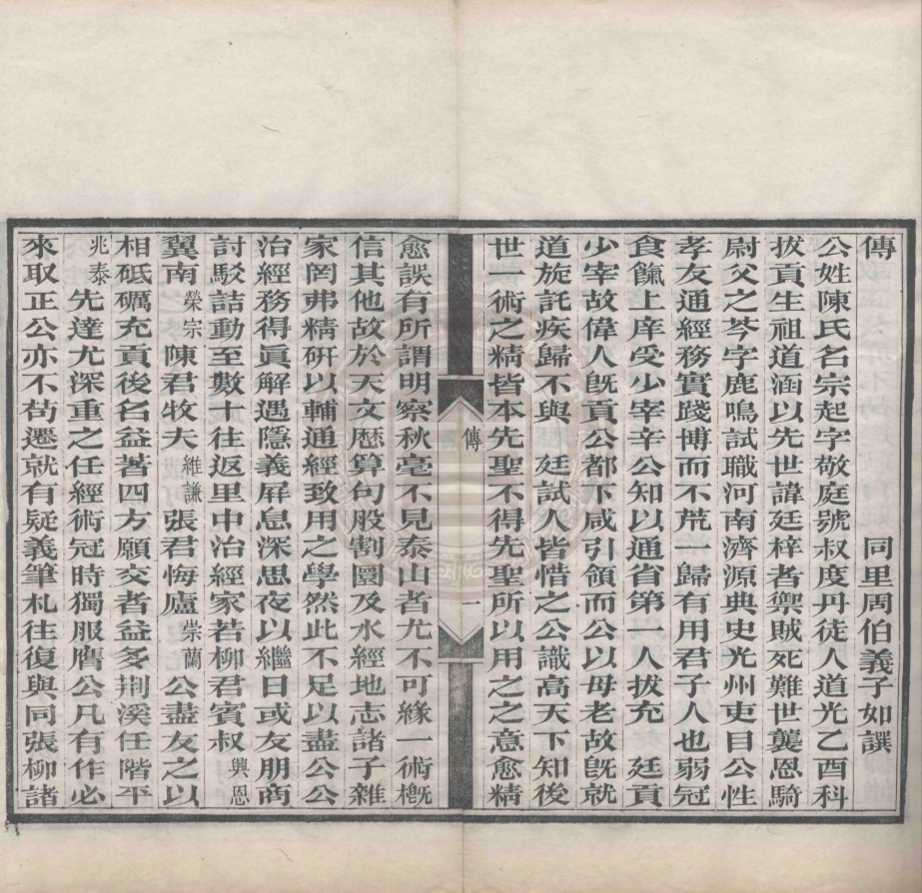 傳　同里周伯義子如譔
公姓陳氏名宗起字敬庭號叔度丹徒人道光乙酉科
拔貢生祖道涵以先世諱廷梓者禦賊死難世襲恩騎
尉父之岑字鹿鳴試職河南濟源典史光州吏目公性
孝友通經務實踐博而不荒一歸有用君子人也弱冠
食餼上庠受少宰辛公知以通省第一人拔充　廷貢
少宰故偉人旣貢公都下咸引領而公以母老故旣就
道旋託疾歸不與　廷試人皆惜之公識高天下知後
世一術之精皆本先聖不得先聖所以用之之意愈精
傳　一
愈誤有所謂明察秋毫不見泰山者尤不可緣一術槪
信其他故於天文歷算句股割圜及水經地志諸子雜
家罔弗精研以輔通經致用之學然此不足以盡公公
治經務得眞解遇隱義屏息深思夜以繼日或友朋商
討駁詰動至數十往返里中治經家若柳君賓叔興恩
翼南榮宗陳君牧夫維謙張君悔廬崇蘭公盡友之以
相砥礪充貢後名益著四方願交者益多荆溪任階平
兆泰先達尤深重之任經術冠時獨服膺公凡有作必
來取正公亦不苟遷就有疑義筆札往復與同張柳諸